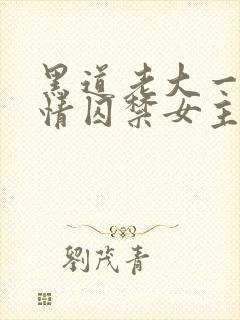 黑道老大一
情囚禁女主
劉茂青